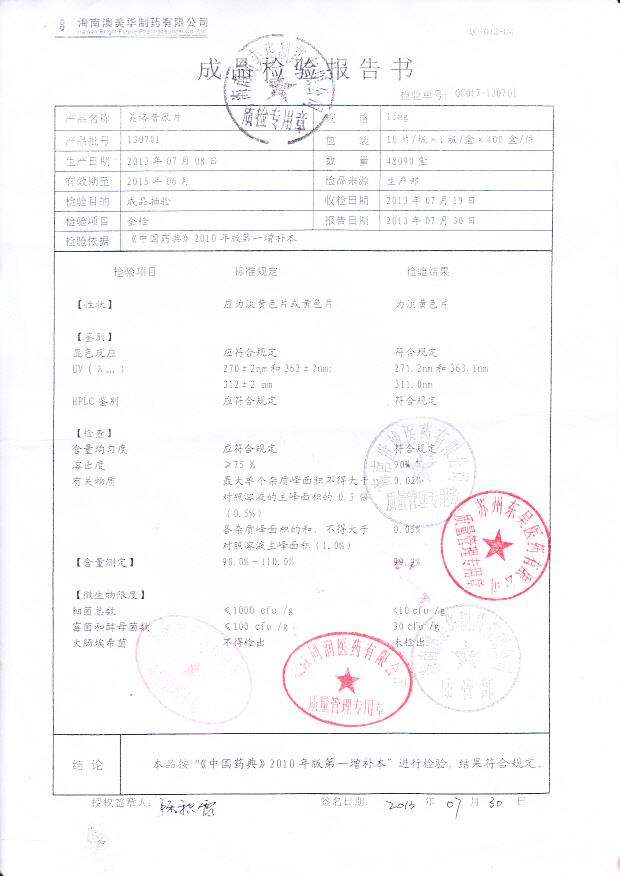 海南澳美华制药有限公司
Hainan Bright Future Pharmaceutical Co.,Ltd
QC-013-04
成品检验报告书
检验单号: QC017-130701
产品名称 美洛昔康片 规格 15mg
产品批号 130701 包装 10片/板×1板/盒×400盒/件
生产日期 2013年07月08日 数量 48090盒
有效期至 2015年06月 检品来源 生产部
检验目的 成品抽验 收检日期 2013年07月19日
检验项目 全检 报告日期 2013年07月30日
检验依据 《中国药典》2010年版第一增补本
检验项目 标准规定 检验结果
【性状】 应为淡黄色片或黄色片 为淡黄色片
【鉴别】
显色反应 应符合规定 符合规定
UV 270±2nm和362±2nm; 271.2nm和363.1nm
312±2 nm 311.0nm
HPLC鉴别 应符合规定 符合规定
【检查】
含量均匀度 应符合规定 符合规定
溶出度 ≥75% 90%
有关物质 最大单个杂质峰面积不得大于 0.02%
对照溶液的主峰面积的0.5倍
(0.5%)
各杂质峰面积的和,不得大于 0.05%
对照溶液主峰面积(1.0%)
【含量测定】 90.0%-110.0%
【微生物限度】
细菌总数 ≤1000 cfu /g <10 cfu /g
霉菌和酵母菌数 ≤100 cfu /g 30 cfu /g
大肠埃希菌 不得检出 未检出
质检专用章
质量管理专用章
苏州东吴医药有限公司
质量管理专用章
同润医药有限公司
质量管理专用章
质管部
结论 本品按“《中国药典》2010年版第一增补本”进行检验,结果符合规定。
授权签章人: 签名日期: 2013年07月30日